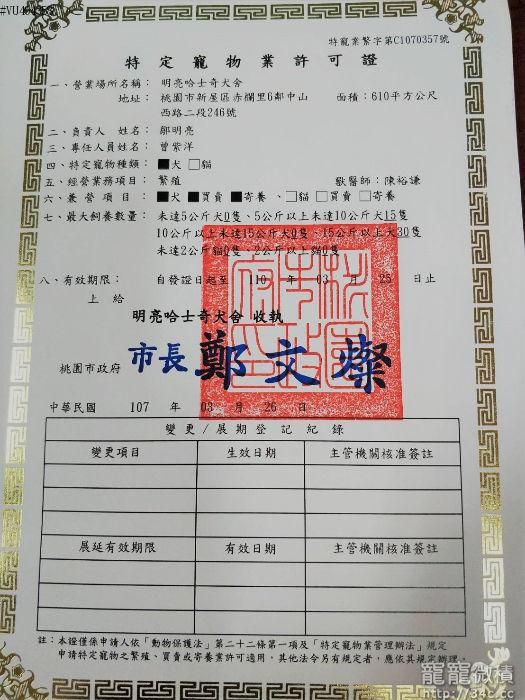 特寵業繁字第C1070357號
特定寵物業許可證
一、營業場所名稱： 明亮哈士奇犬舍
地址： 桃園市新屋區赤欄里6鄰中山 面積：610平方公尺
西路二段246號
二、負責人 姓名： 鄔明亮
三、專任人員姓名： 曾紫洋
四、特定寵物種類： ■犬 □貓
五、經營業務項目： 繁殖 獸醫師：陳裕謙
六、兼營項目： ■犬 ■買賣 ■寄養 、□貓 □買賣 □寄養
七、最大飼養數量： 未達5公斤犬0隻、5公斤以上未達10公斤犬15隻
10公斤以上未達15公斤犬0隻、15公斤以上犬30隻
未達2公斤貓0隻、2公斤以上貓0隻
八、有效期限： 自發證日起至 110 年 03 月 25 日止
上給
明亮哈士奇犬舍 收執
桃園市政府 市長 鄭文燦
中華民國 107 年 03 月 26 日
變更/展期登記紀錄
變更項目 生效日期 主管機關核准簽註
展延有效期限 有效日期 主管機關核准簽註
註：本證僅係申請人依「動物保護法」第二十二條第一項及「特定寵物業管理辦法」規定
申請特定寵物之繁殖、買賣或寄養業許可適用，其他法令另有規定者，應依其規定辦理。
龍龍微積
http://734c.cc